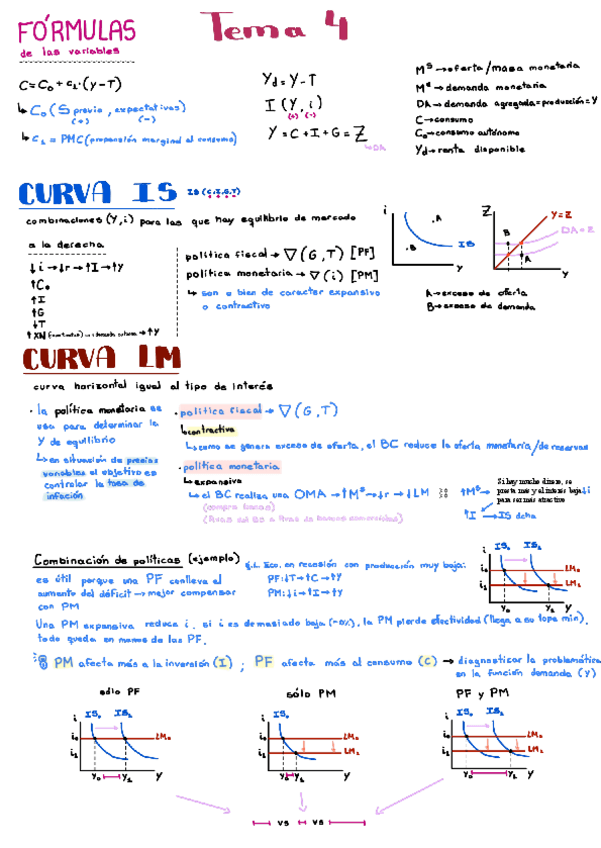 FÓRMULAS
de las variables
Tema 4
C = C₀ + c₁ · (y - T)
↳ C₀ (S previo, expectativas)
(+) (-)
↳ c₁ = PMC (propensión marginal al consumo)
Yd = Y - T
I (Y, i)
(+) (-)
Y = C + I + G = Z
↳ DA
Mˢ → oferta/masa monetaria
Mᵈ → demanda monetaria
DA → demanda agregada = producción = Y
C → consumo
C₀ → consumo autónomo
Yd → renta disponible
CURVA IS IS (C, I, G, T)
combinaciones (Y, i) para las que hay equilibrio de mercado
a la derecha
↓i → ↓r → ↑I → ↑Y
↑C₀
↑I
↑G
↓T
↑XN → ↑Y
política fiscal → ▽ (G, T) [PF]
política monetaria → ▽ (i) [PM]
↳ son o bien de carácter expansivo
o contractivo
i
A
B
IS
Y
Z
Y = Z
DA = Z
B
A
Y
A → exceso de oferta
B → exceso de demanda
CURVA LM
curva horizontal igual al tipo de interés
· la política monetaria se
usa para determinar la
Y de equilibrio
↳ en situación de precios
variables el objetivo es
controlar la tasa de
inflación
· política fiscal → ▽ (G, T)
↳ contractiva
↳ como se genera exceso de oferta, el BC reduce la oferta monetaria/de reservas
· política monetaria
↳ expansiva
↳ el BC realiza una OMA → ↑Mˢ → ↓r → ↓LM
(compra bonos)
↑Mˢ →
Si hay mucho dinero, se
presta más y el interés baja ↓i
para ser más atractivo
↑I → IS dcha
Combinación de políticas (ejemplo)
es útil porque una PF conlleva el
aumento del déficit → mejor compensar
con PM
Ej. Eco. en recesión con producción muy baja:
PF: ↓T → ↑C → ↑Y
PM: ↓i → ↑I → ↑Y
i
IS₀ IS₁
i₀ LM₀
i₁ LM₁
Y₀ Y₁ Y
Una PM expansiva reduce i, si i es demasiado baja (≈0%), la PM pierde efectividad (llega a su tope min),
todo queda en manos de las PF.
PM afecta más a la inversión (I) ; PF afecta más al consumo (C) → diagnosticar la problemática
en la función demanda (Y)
sólo PF
i
IS₀ IS₁
i₀ LM₀
i₁
Y₀ Y₁ Y
sólo PM
i
IS₀
i₀ LM₀
i₁ LM₁
Y₀ Y₁ Y
PF y PM
i
IS₀ IS₁
i₀ LM₀
i₁ LM₁
Y₀ Y₁ Y
vs vs